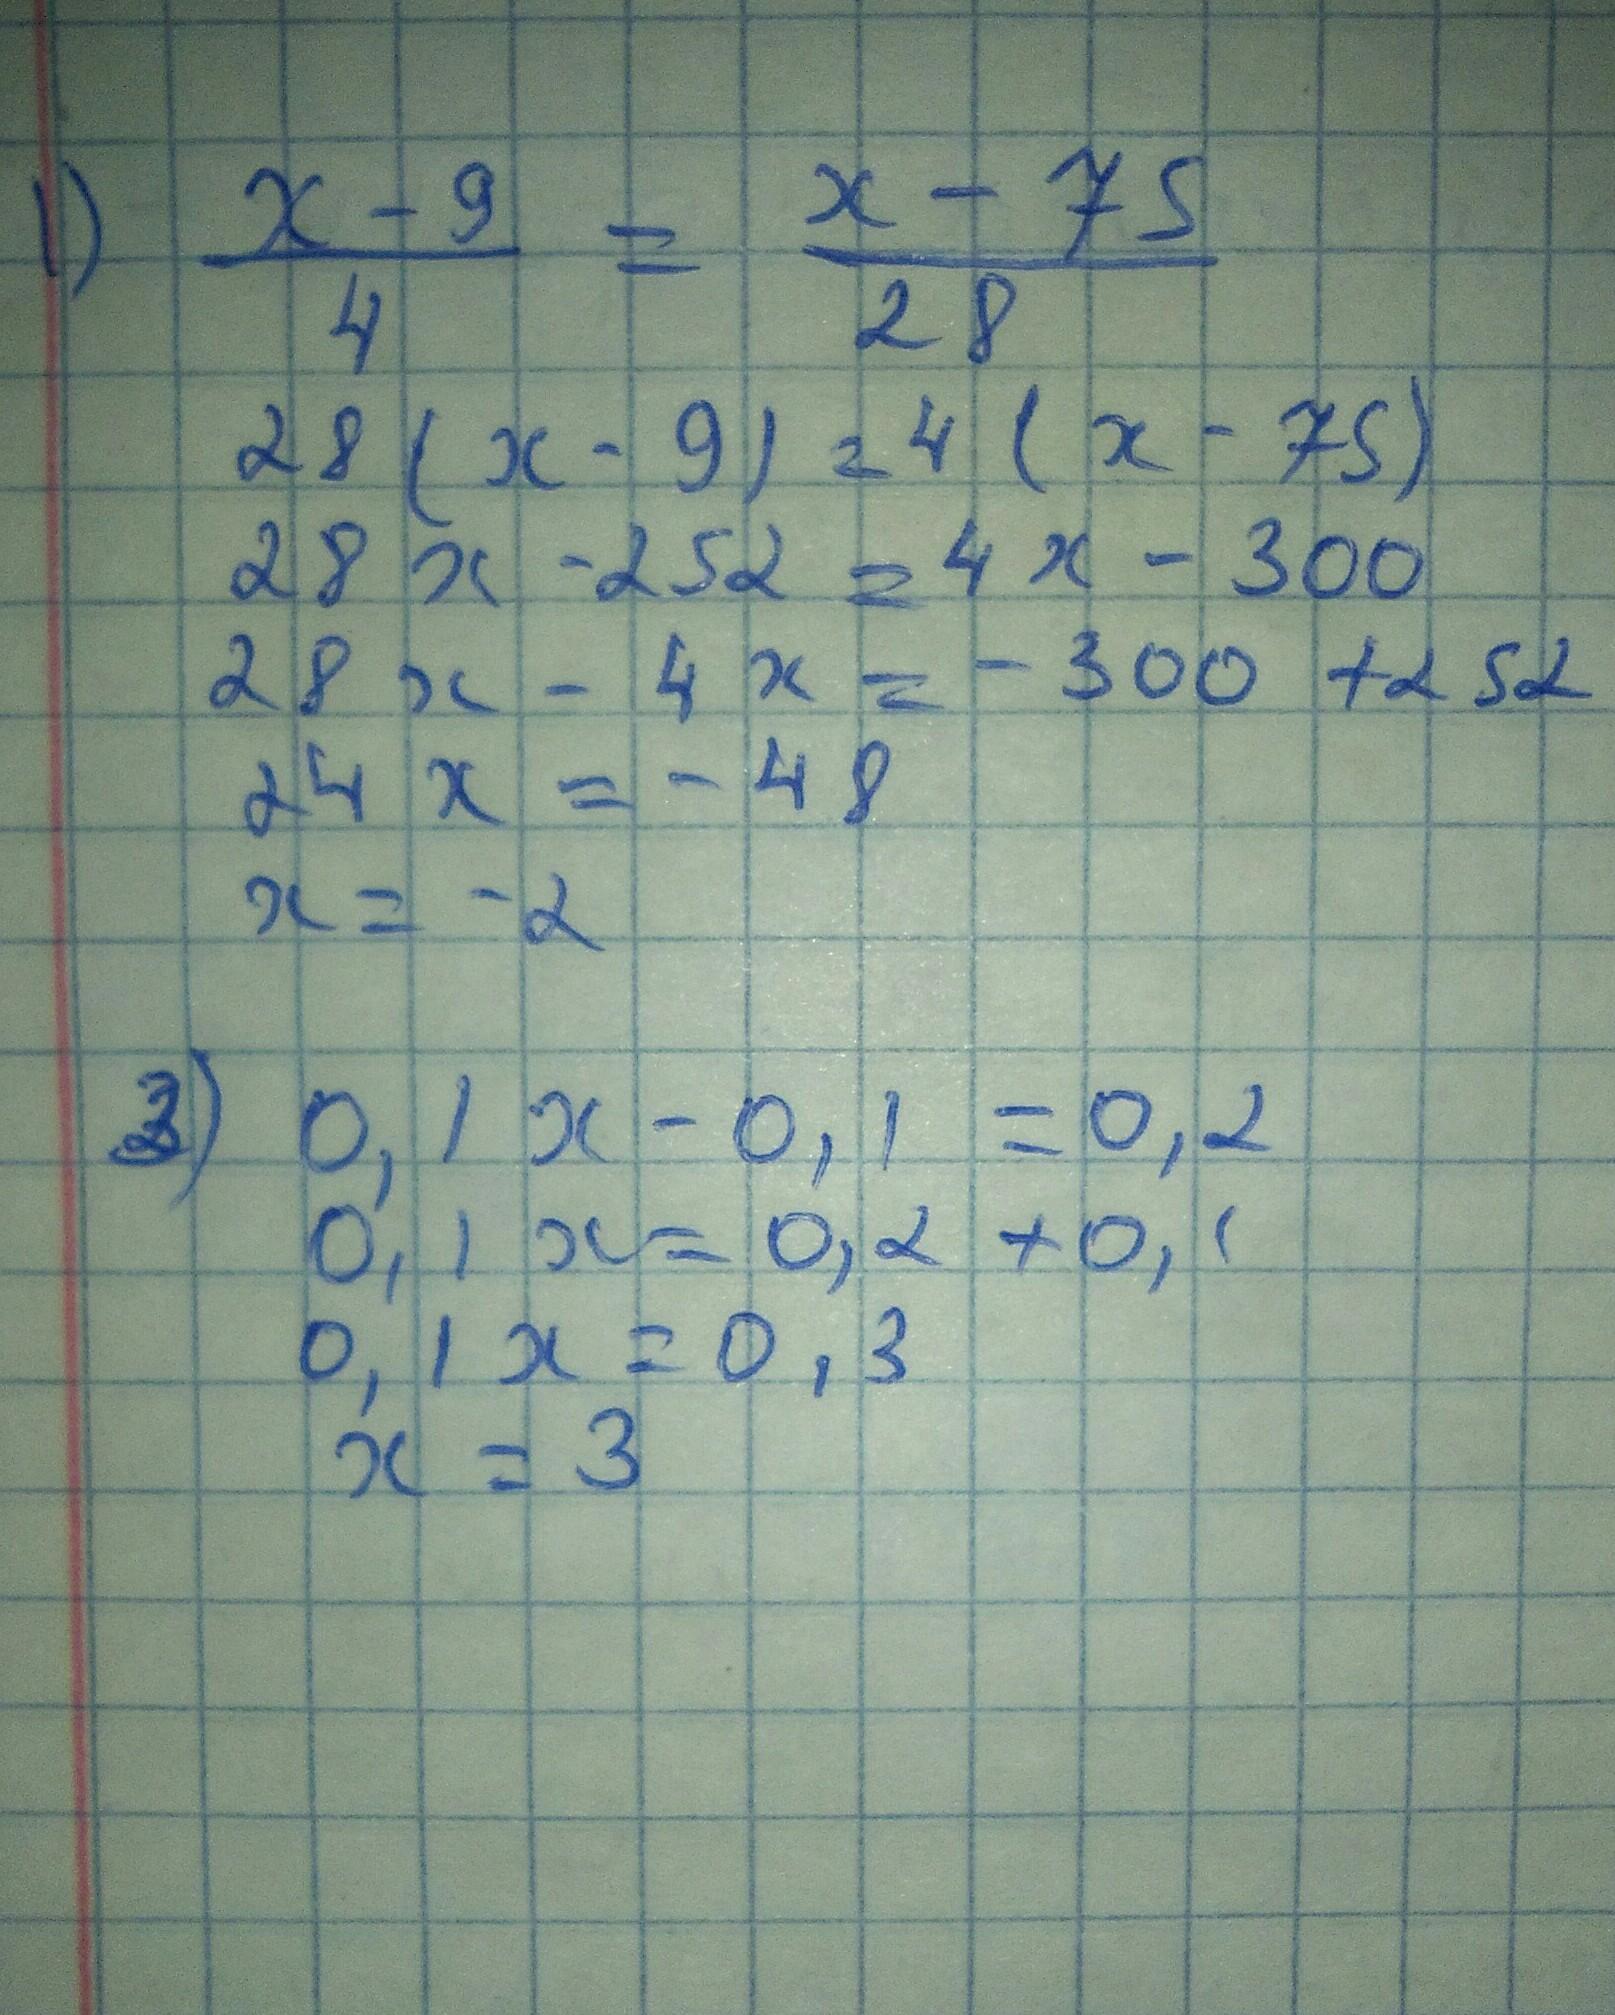 1) x - 9 / 4 = x - 75 / 28
28 ( x - 9 ) = 4 ( x - 75 )
28 x - 252 = 4 x - 300
28 x - 4 x = - 300 + 252
24 x = - 48
x = - 2
3) 0,1 x - 0,1 = 0,2
0,1 x = 0,2 + 0,1
0,1 x = 0,3
x = 3